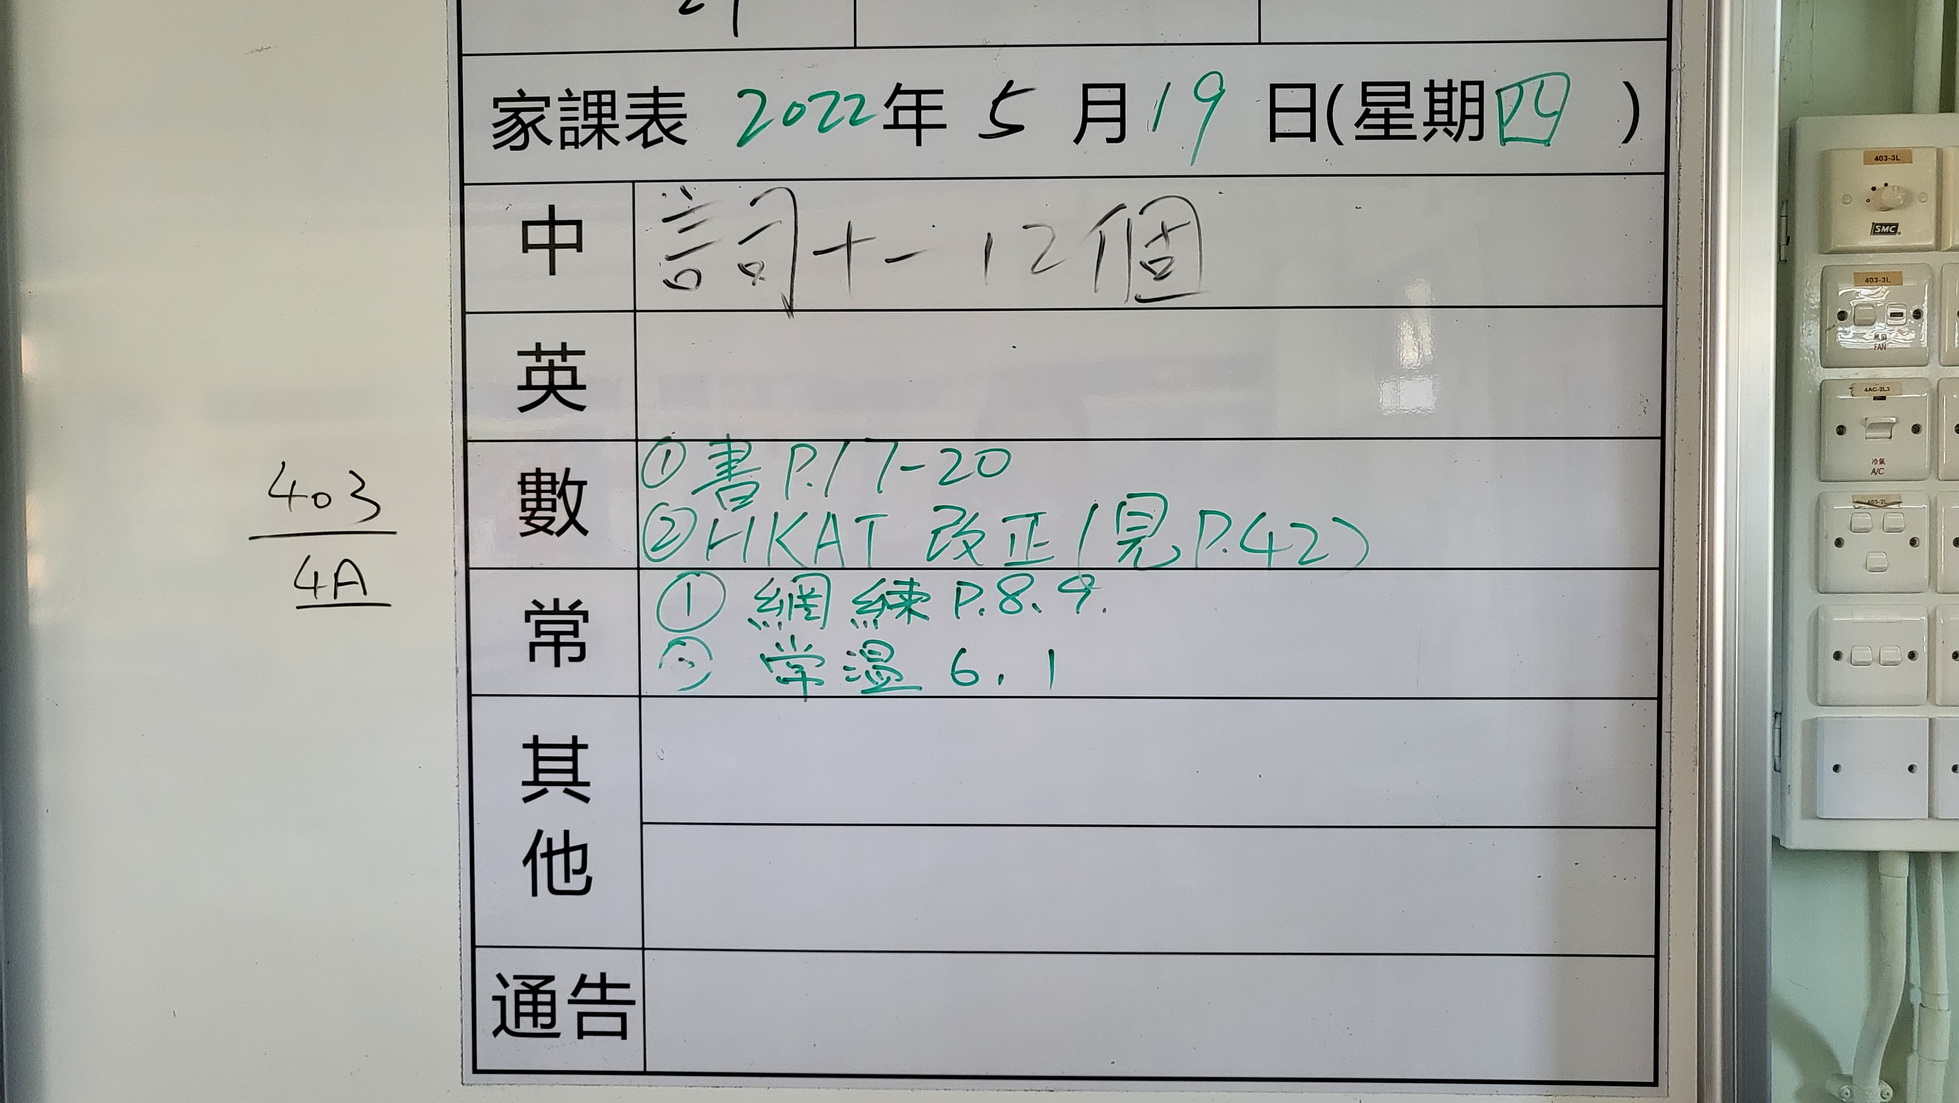 家課表 2022年 5 月 19 日(星期四 )
中 詞十一 12個
英
數 ①書P.17-20
②HKAT 改正(見P.42)
常 ①網練P.8、9.
② 常溫 6.1
其他
通告
403
4A
403-3L
SMC
403-3L
FAN
4AC-2L3
冷氣
A/C